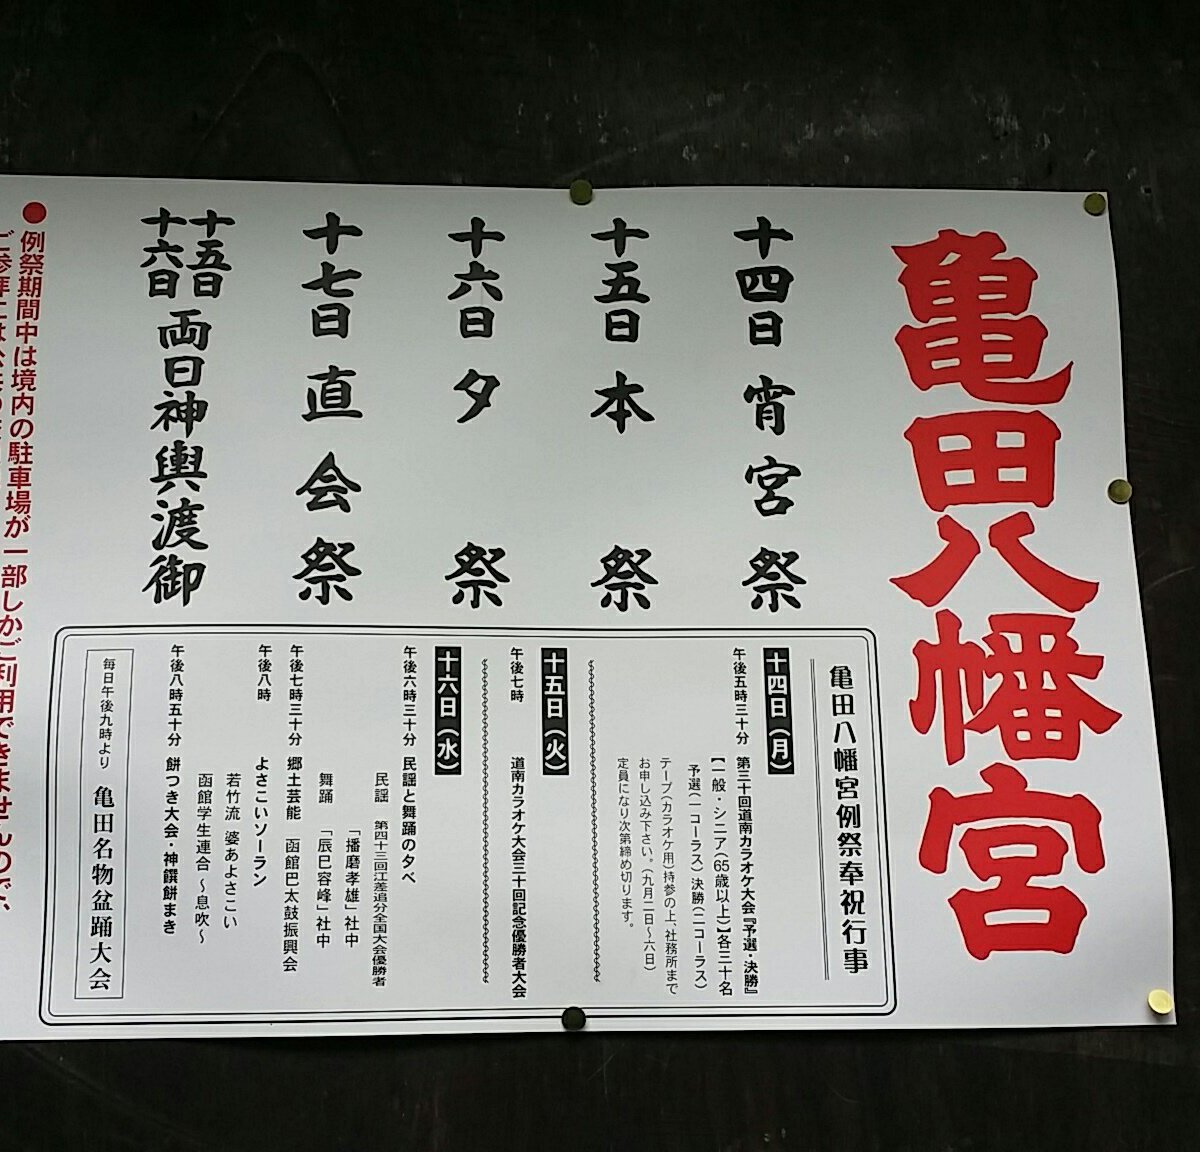 亀田八幡宮
十四日 宵宮祭
十五日 本祭
十六日 夕祭
十七日 直会祭
十五日
十六日
両日神輿渡御
亀田八幡宮例祭奉祝行事
十四日(月)
午後五時三十分 第三十回道南カラオケ大会『予選・決勝』
【一般・シニア(65歳以上)】各三十名
予選(一コーラス)決勝(二コーラス)
テープ(カラオケ用)持参の上、社務所まで
お申し込み下さい。(九月二日〜六日)
定員になり次第締め切ります。
十五日(火)
午後七時 道南カラオケ大会三十回記念優勝者大会
十六日(水)
午後六時三十分 民謡と舞踊の夕べ
民謡 第四十三回江差追分全国大会優勝者
「播磨孝雄」社中
舞踊 「辰巳容峰」社中
午後七時三十分 郷土芸能 函館巴太鼓振興会
午後八時 よさこいソーラン
若竹流 婆あよさこい
函館学生連合 〜息吹〜
午後八時五十分 餅つき大会・神饌餅まき
毎日午後九時より 亀田名物盆踊大会
●例祭期間中は境内の駐車場が一部しかご利用できませんので、